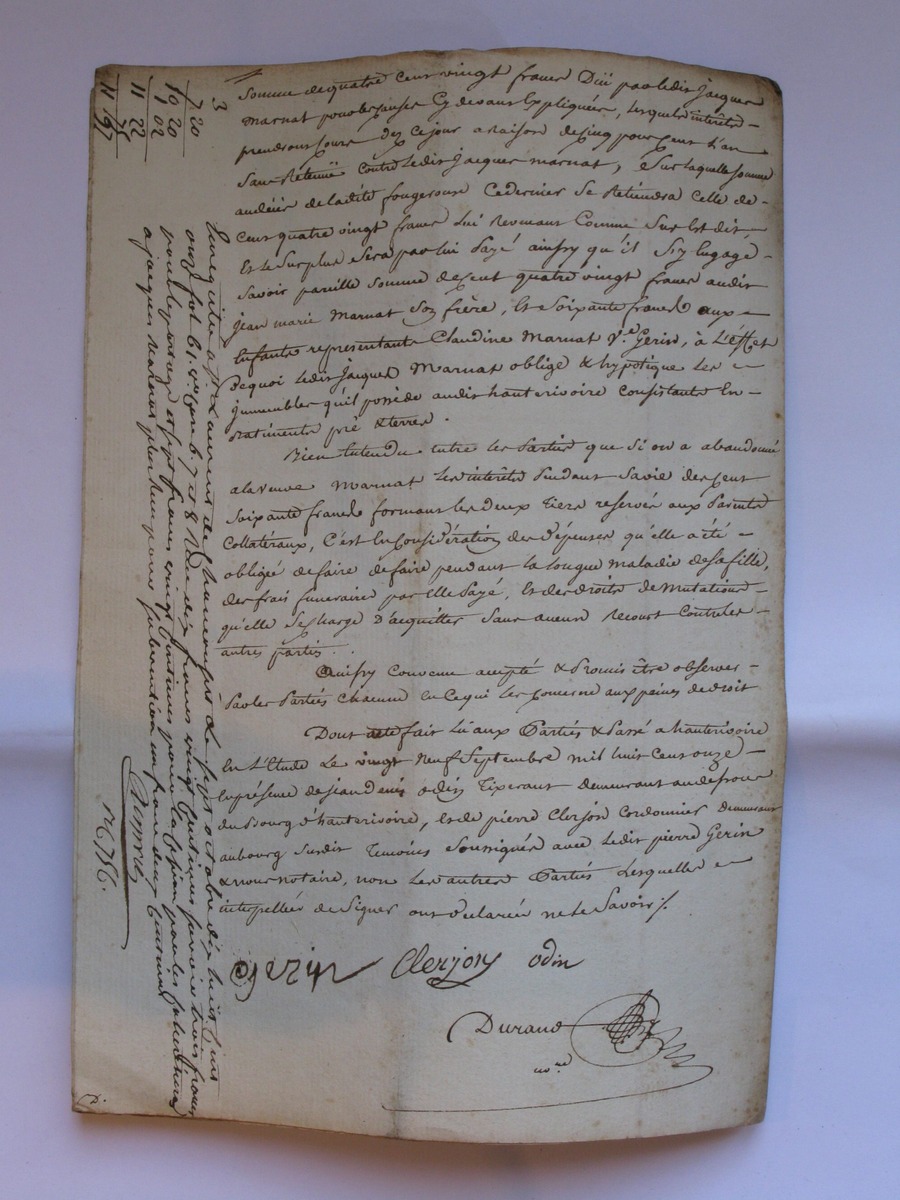 Somme de quatre cent vingt francs Dûï par ledit jacques
Marnat pour les causes Cy devant Expliquées, lesquels interêts
prendront Cours dez ce jour a raison de cinq pour cent l'an
Sans Retenuë Contre ledit jacques marnat, & sur laquelle somme
audeïir de la dite fougerouse Ce dernier Se Retiendra Celle de
Cent quatre vingt francs Lui Revenant Comme Sus Est dit,
Et le Surplus Sera par lui Payé ainsy qu'il S'y Engagé
Savoir pareille Somme de Cent quatre vingt francs audit
jean marie Marnat Son frère, Et Soixante francs aux
Enfants representants Claudine Marnat Ve. Gerin, à L'effet
Dequoi ledit jacques Marnat oblige & hypotique les
jmmeubles qu'il possède audit hauterivoire Consistants En
Batiments pré & terres.
Bien Entendu entre les Parties que Si on a abandonné
a la veuve Marnat les interêts Pendant Sa vie des Cent
Soixante francs formant les deux Tiers reservés aux Parents
Collatéraux, C'est En Considération des Dépenses qu'elle a été
obligé de faire de faire pendant la longue maladie de sa fille,
des frais funeraires par Elle Payé, Et des droits de Mutations
qu'elle Se charge D'acquitter Sans aucun Recourt Contre les
autres parties.
Ainsy Convenu accepté & Promis être observer
Par les Parties chacune En Ce qui les Concerne aux peines de droit
Dont acte fait Lu aux Parties & Passé a hauterivoire
En L'Etude Le vingt Neuf Septembre mil huit Cent onze
En présence de jean Denis odin Tixerant demeurant au
du Bourg d'hauterivoire, Et de pierre Clerjon Cordonnier demeurant
au bourg Susdit Temoins Soussignés avec ledit pierre Gerin
& nous notaire, non les autres Parties lesquelles
interpellées de Signer ont déclarées ne le Savoir ./.
gerin Clerjon odin
Durand
nore
3
7 20
1 02
11 22
75
11 97
Enregistré a St. Laurent de Chamousset le sept octobre dix huit cent
onze fol 61. Ro. Case 6. 7 et 8 Reçu dix francs vingt Centimes savoir trois francs
pour le partage et sept francs vingt Centimes pour la
a jacques Marnat plus un franc deux Centimes
no. 756.
D.